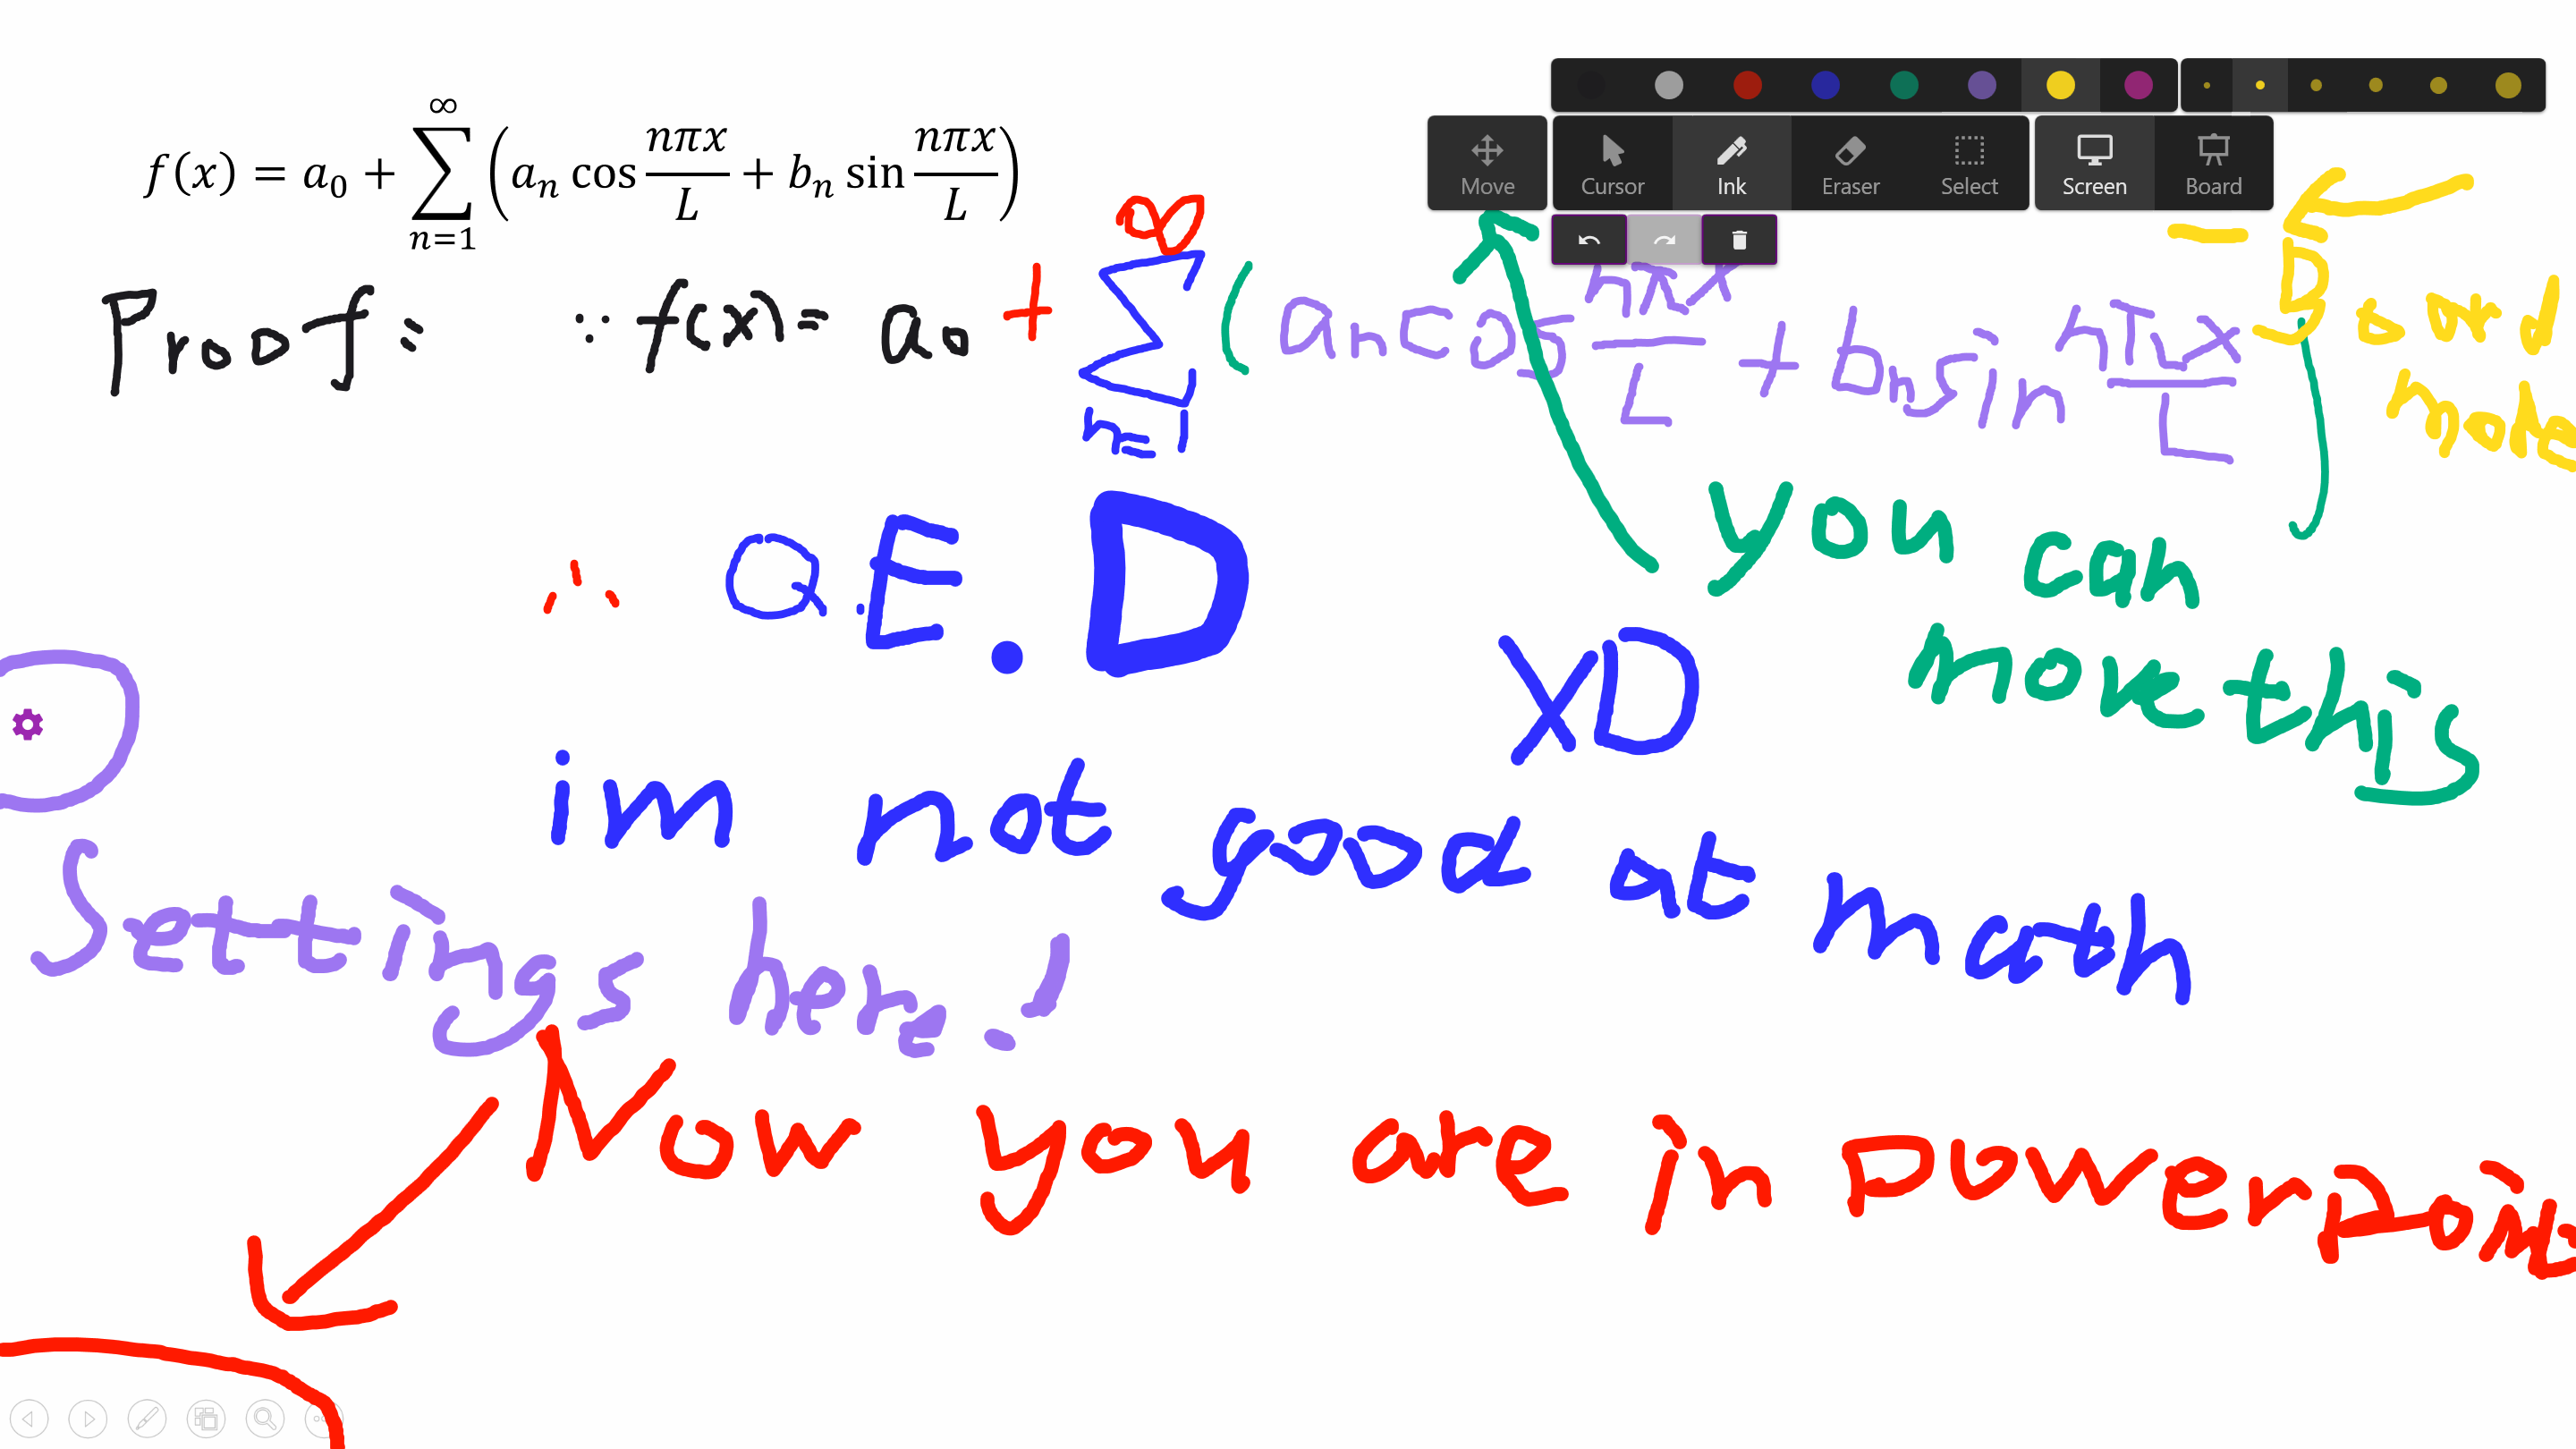 f(x) = a₀ + ∑_{n=1}^{∞} (aₙ cos nπx/L + bₙ sin nπx/L)
Move
Cursor
Ink
Eraser
Select
Screen
Board
Proof: ∵ f(x) = a₀ + ∑_{n=1}^{∞} (aₙcos nπx/L + bₙsin nπx/L)
Board
mode
∴ Q.E.D
you can
move this
XD
im not good at math
Settings here!
Now you are in powerpoint